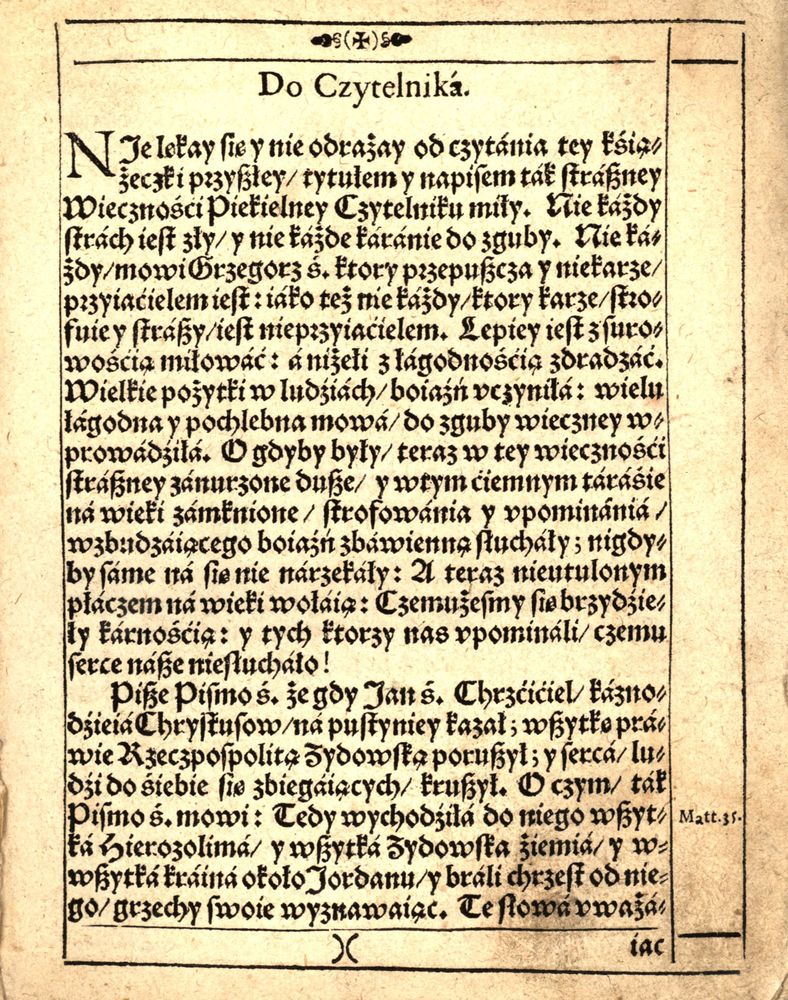 Do Czytelniká.
NJe lękay się y nie odrażay od czytánia tey kśią⸗
żeczki przyßłey/ tytułem y napisem ták stráßney
Wieczności Piekielney Czytelniku miły. Nie káżdy
strách iest zły/ y nie káżde káránie do zguby. Nie ká⸗
żdy/ mowi Grzegorz ś. ktory przepußcza y niekarze/
przyiaćielem iest: iáko też nie káżdy/ ktory karze/ stro⸗
fuie y stráßy/ iest nieprzyiaćielem. Lepiey iest z suro⸗
wośćią miłowáć: á niżeli z łágodnośćią zdradzáć.
Wielkie pożytki w ludźiách/ boiaźń vczyniłá: wielu
łágodna y pochlebna mowá/ do zguby wieczney w⸗
prowádźiłá. O gdyby były/ teraz w tey wiecznośći
stráßney zánurzone duße/ y w tym ćiemnym táráśie
ná wieki zámknione/ strofowánia y vpominániá/
wzbudzáiącego boiaźń zbáwienną słucháły; nigdy⸗
by sáme ná się nie nárzekáły: A teraz nieutulonym
płáczem ná wieki wołáią: Czemużesmy się brzydźie⸗
ły kárnośćią: y tych ktorzy nas vpomináli/ czemu
serce náße niesłucháło!
Piße Pismo ś. że gdy Jan ś. Chrzćićiel/ kázno⸗
dźieiá Chrystusow/ ná pustyniey kazał; wßytkę prá⸗
wie Rzeczpospolitą Zydowską porußył; y sercá/ lu⸗
dźi do śiebie się zbiegáiących/ krußył. O czym/ ták
Pismo ś. mowi: Tedy wychodźiłá do niego wßyt⸗
ká Hierozolimá/ y wßytká Zydowska źiemiá/ y w⸗
wßytká kráiná około Jordanu/ y bráli chrzest od nie⸗
go/ grzechy swoie wyznawaiąc. Te słowá vważá⸗
Matt. 3.
)(
iac